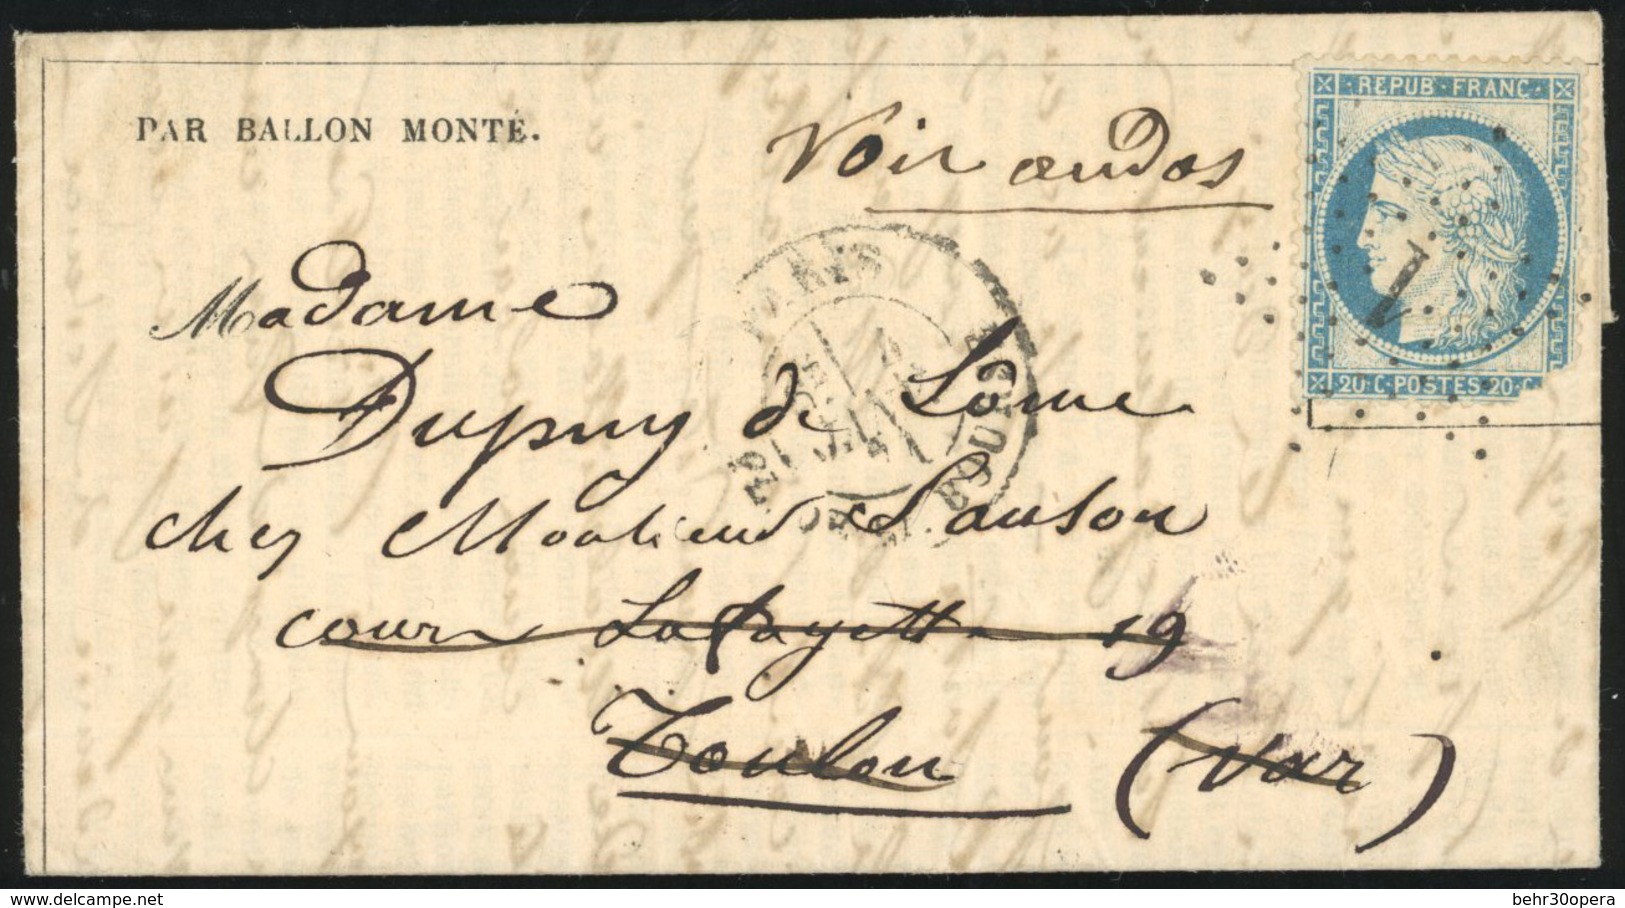 PAR BALLON MONTÉ.
Voir au dos
REPUB·FRANC·
1
20·C·POSTES·20·C
PARIS
BOURSE
Madame
Dupuy de Lôme
chez Monsieur Sauson
cours Lafayette 19
Toulon (Var)
www.delcampe.net
behr30opera